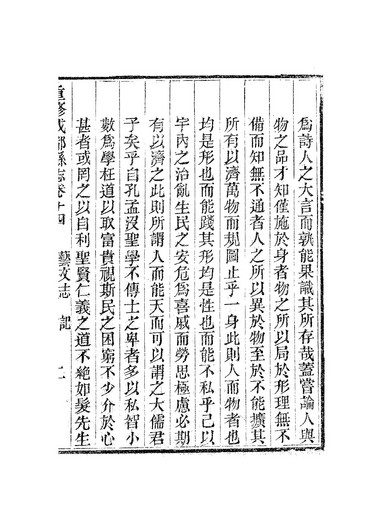 為詩人之大言而孰能果識其所存哉蓋嘗論人與
物之品才知僅施於身者物之所以局於形理無不
備而知無不通者人之所以異於物至於不能擴其
所有以濟萬物而規圖止乎一身此則人而物者也
均是形也而能踐其形均是性也而能不私乎己以
宇內之治亂生民之安危為喜戚而勞思極慮必期
有以濟之此則所謂人而能天而可以謂之大儒君
子矣乎自孔孟沒聖學不傳士之卑者多以私智小
數為學枉道以取富貴視斯民之困窮不少介於心
甚者或罔之以自利聖賢仁義之道不絶如髮先生
重修成都縣志卷十四 藝文志 記 二